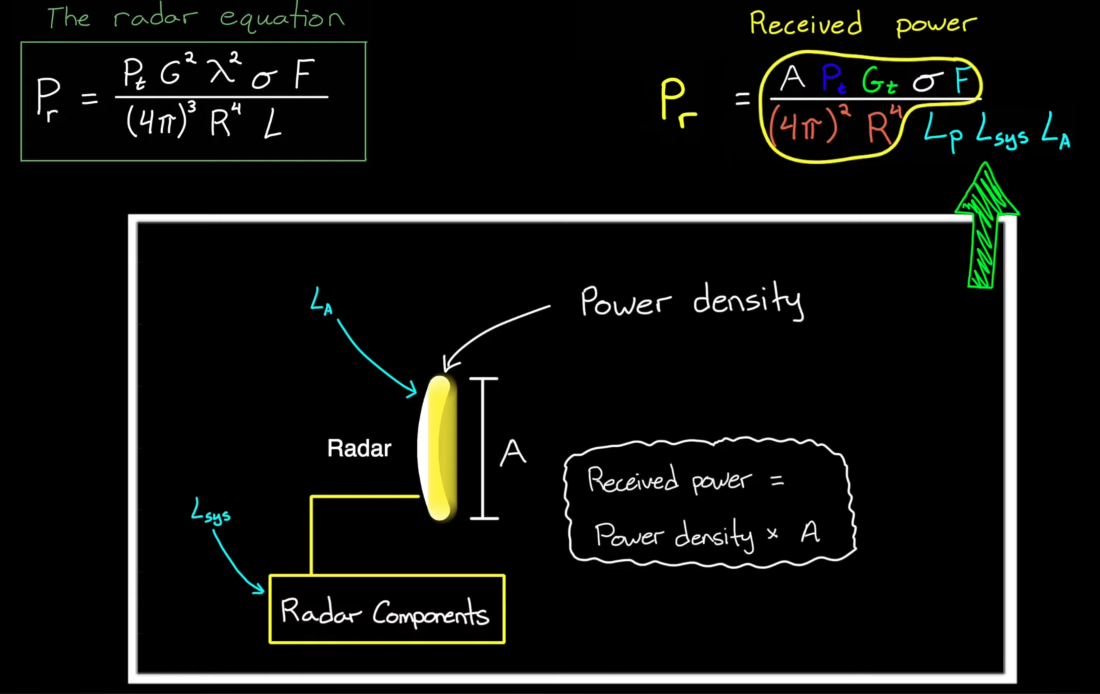 The radar equation
P_r = P_t G² λ² σ F / (4π)³ R⁴ L
Received power
P_r = A P_t G_t σ F / (4π)² R⁴ L_p L_sys L_A
L_A
Power density
Radar
A
Received power =
Power density × A
L_sys
Radar Components